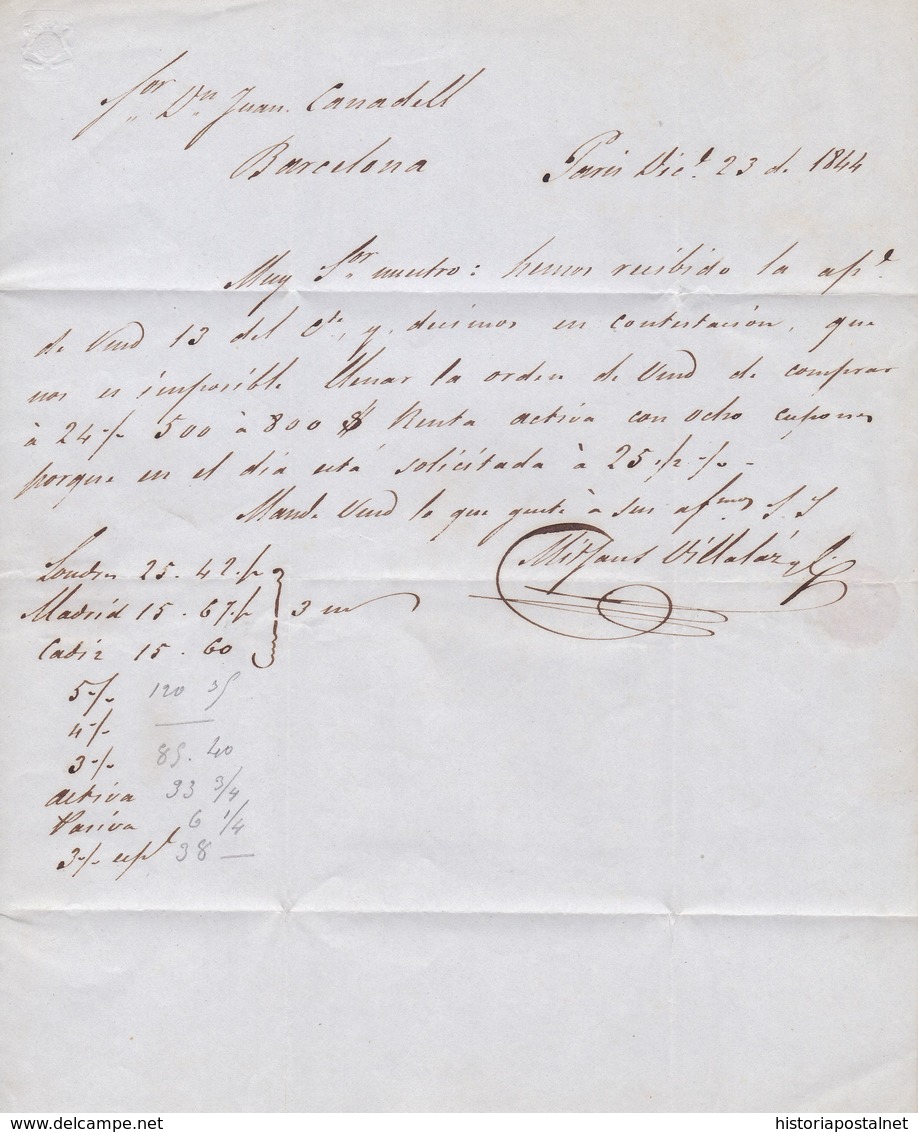 Sor Dn Juan Canadell
Barcelona
Paris Dice 23 de 1844
Muy Sor nuestro: hemos recibido la apda
de Vmd 13 del Cte, y, decimos en contestación, que
nos es imposible llenar la orden de Vmd de comprar
à 24-/- 500 à 800 $ Renta activa con ocho cupones
porque en el día está solicitada à 25 1/2 -/- -
Mande Vmd lo que guste à sus afmos S. S
Mitjans Villaláz y C
Londres 25. 42 1/2
Madrid 15. 67 1/2 3 m
Cadiz 15. 60
5-/- 120 35
4-/- —
3-/- 85. 40
activa 33 3/4
Pasiva 6 1/4
3-/- espl 38 —
delcampe.net
historiapostalnet